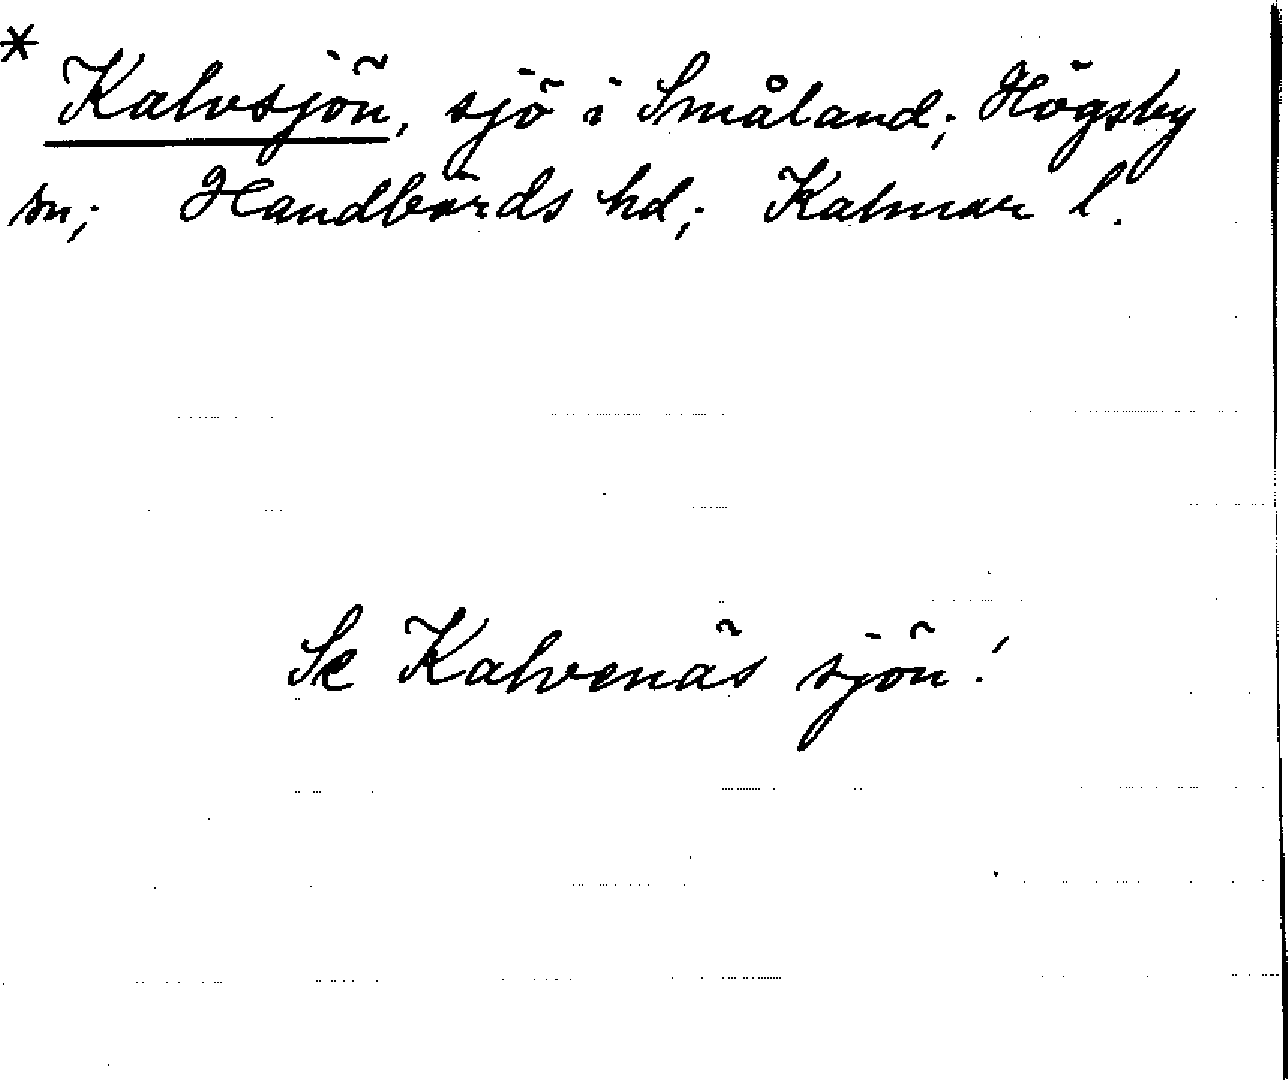 * Kalvsjön, sjö i Småland; Högsby
sn; Handbörds hd; Kalmar l.
Se Kalvenäs sjön!